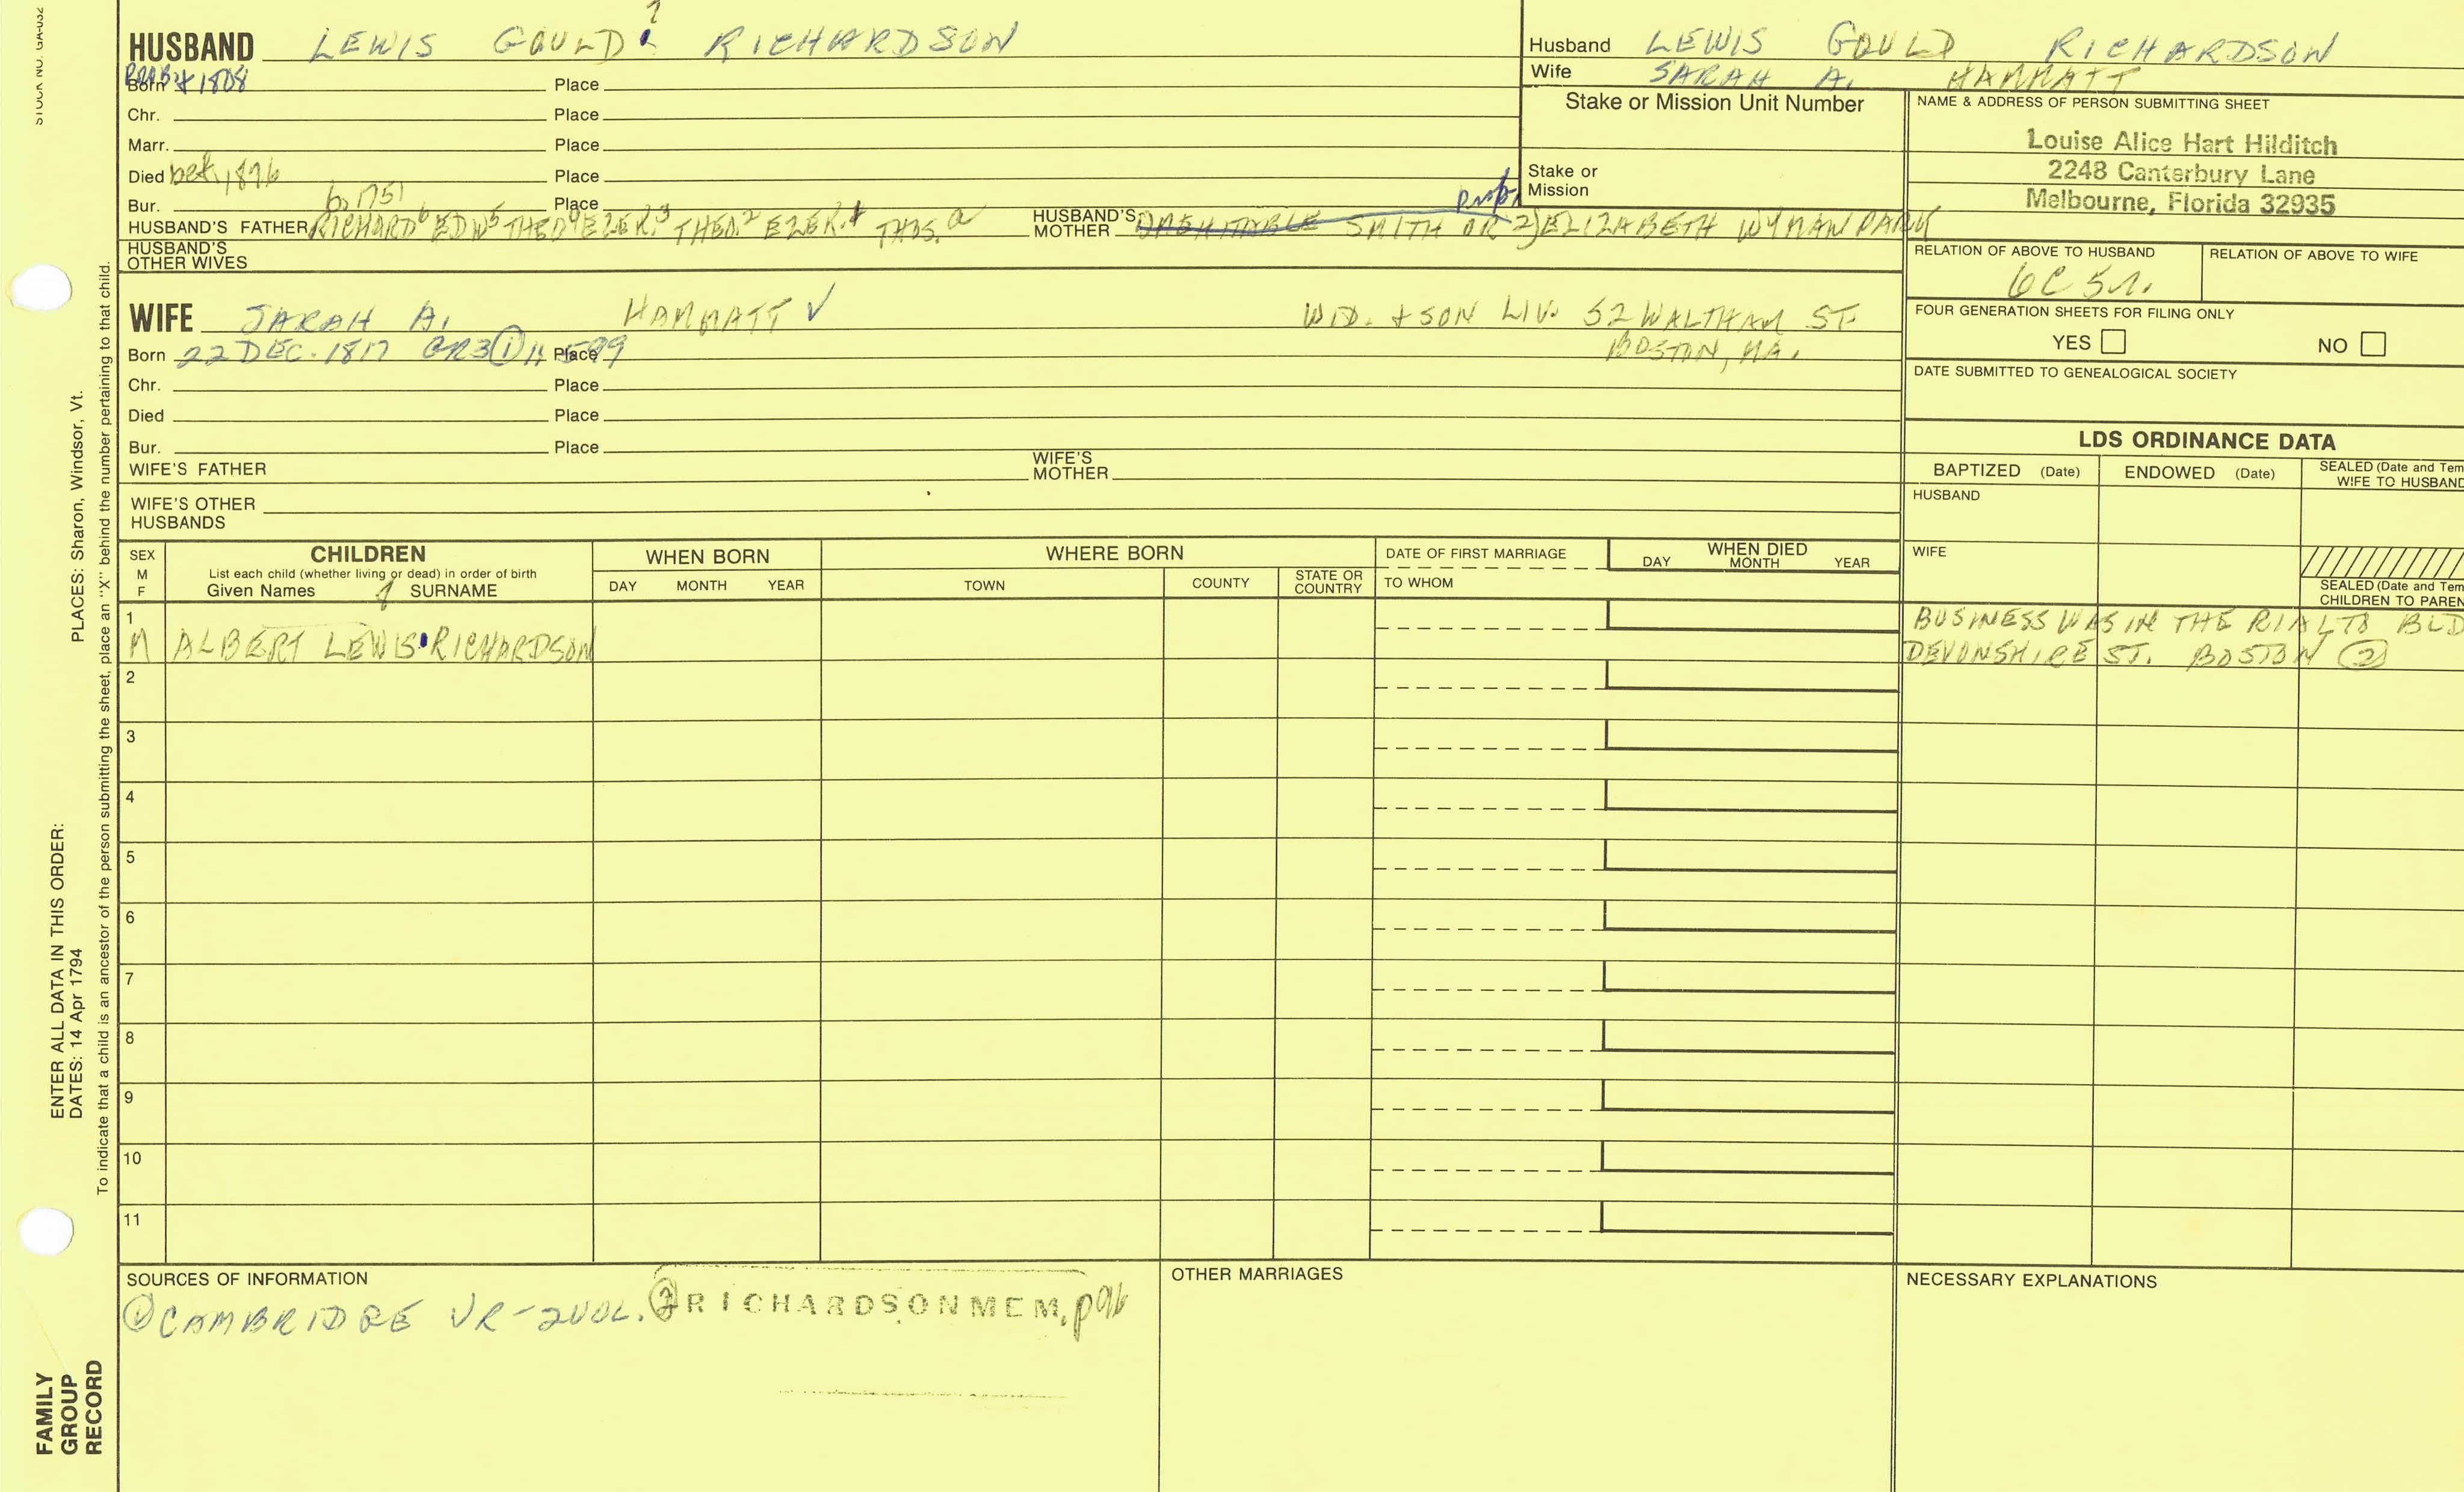 STOCK NO. GA-032
7
HUSBAND LEWIS GOULD RICHARDSON
Born 1808 Place
Chr. Place
Marr. Place
Died bef. 1876 Place
Bur. b. 1751 Place
HUSBAND'S FATHER RICHARD6 EDW5 THEO4 EZEK.3 THEO.2 EZEK.1 THOS.a
HUSBAND'S MOTHER SMITH OR 2) ELIZABETH WYMAN PARK
prob.
HUSBAND'S OTHER WIVES
Husband LEWIS GOULD RICHARDSON
Wife SARAH A. HAMMATT
Stake or Mission Unit Number
Stake or Mission
NAME & ADDRESS OF PERSON SUBMITTING SHEET
Louise Alice Hart Hilditch
2248 Canterbury Lane
Melbourne, Florida 32935
RELATION OF ABOVE TO HUSBAND
6C 5r.
RELATION OF ABOVE TO WIFE
FOUR GENERATION SHEETS FOR FILING ONLY
YES NO
DATE SUBMITTED TO GENEALOGICAL SOCIETY
WIFE SARAH A. HAMMATT ✓ WID. & SON LIV. 52 WALTHAM ST.
BOSTON, MA.
Born 22 DEC. 1817 GR3 ① Place
Chr. Place
Died Place
Bur. Place
WIFE'S FATHER
WIFE'S MOTHER
WIFE'S OTHER HUSBANDS
LDS ORDINANCE DATA
BAPTIZED (Date) ENDOWED (Date) SEALED (Date and Tem
WIFE TO HUSBAND
HUSBAND
WIFE
SEALED (Date and Tem
CHILDREN TO PAREN
SEX M F
CHILDREN
List each child (whether living or dead) in order of birth
Given Names SURNAME
WHEN BORN
DAY MONTH YEAR
WHERE BORN
TOWN COUNTY STATE OR COUNTRY
DATE OF FIRST MARRIAGE
TO WHOM
WHEN DIED
DAY MONTH YEAR
1
M ALBERT LEWIS RICHARDSON
BUSINESS WAS IN THE RIALTO BLD
DEVONSHIRE ST. BOSTON ②
2
3
4
5
6
7
8
9
10
11
SOURCES OF INFORMATION
① CAMBRIDGE VR-2VOL. ② RICHARDSON MEM. p96
OTHER MARRIAGES
NECESSARY EXPLANATIONS
PLACES: Sharon, Windsor, Vt.
ENTER ALL DATA IN THIS ORDER:
DATES: 14 Apr 1794
To indicate that a child is an ancestor of the person submitting the sheet, place an "X" behind the number pertaining to that child.
FAMILY
GROUP
RECORD